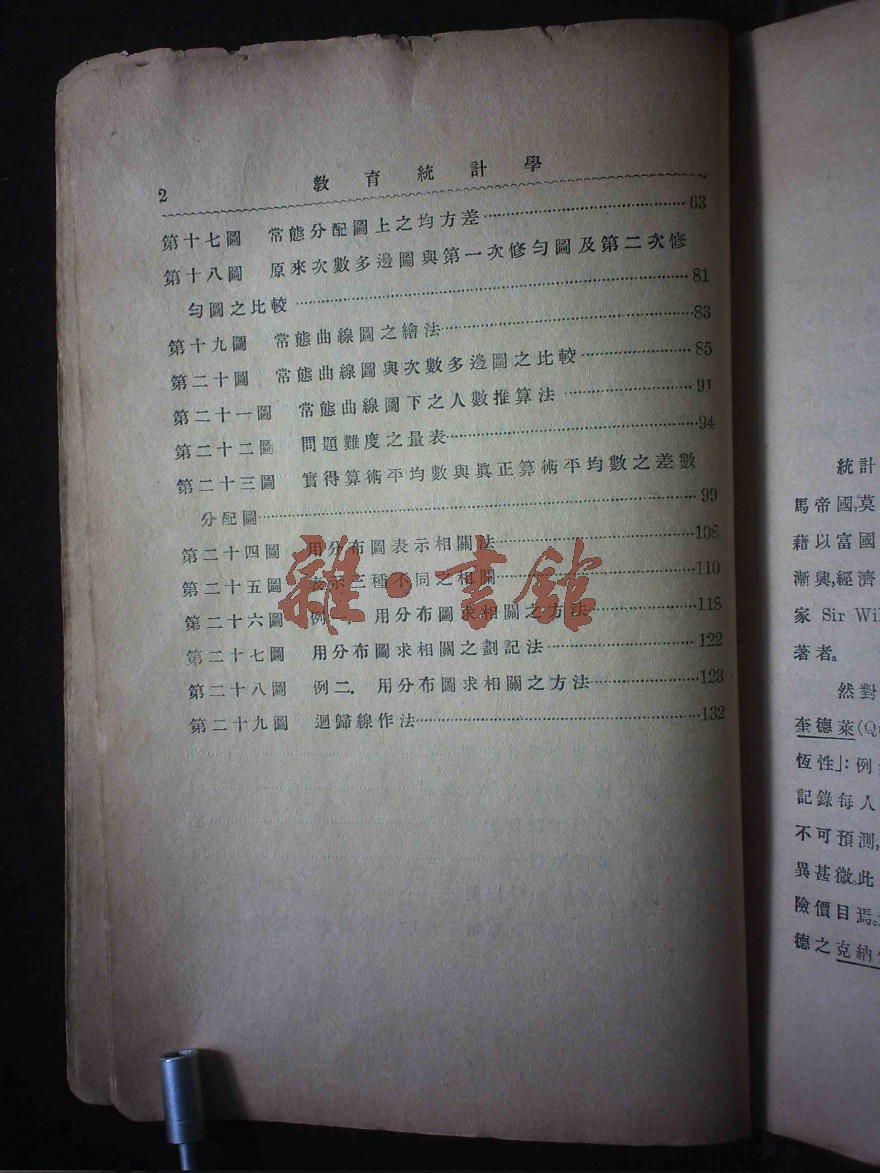 2 教育統計學
第十七圖 常態分配圖上之均方差……63
第十八圖 原來次數多邊圖與第一次修勻圖及第二次修
勻圖之比較……81
第十九圖 常態曲線圖之繪法……83
第二十圖 常態曲線圖與次數多邊圖之比較……85
第二十一圖 常態曲線圖下之人數推算法……91
第二十二圖 問題難度之量表……94
第二十三圖 實得算術平均數與眞正算術平均數之差數
分配圖……99
第二十四圖 用分布圖表示相關法……108
第二十五圖 表示三種不同之相關……110
第二十六圖 例一. 用分布圖求相關之方法……118
第二十七圖 用分布圖求相關之劃記法……122
第二十八圖 例二. 用分布圖求相關之方法……123
第二十九圖 迴歸線作法……132
雜·書館
統計
馬帝國,莫
藉以富國
漸興,經濟
家 Sir Wil
著者。
然對
奎德萊(Qu
恆性」:例
記錄每人
不可預測,
異甚微。此
險價目焉。
德之克納